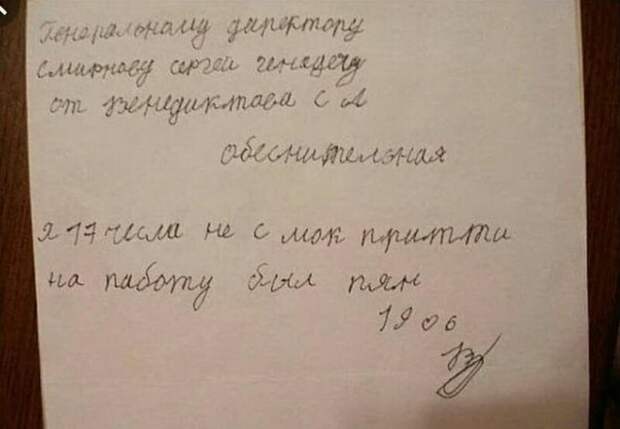 Генеральному директору
смирнову сергей генадечу
от Венедиктова С А
обеснителэная
я 17 чесла не с мок притти
на паботу был пян
19 06